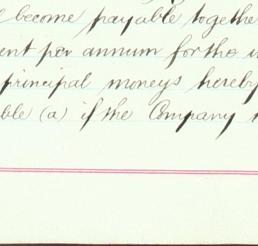 become payable together
ent per annum for the
principal moneys hereby
ble (a) if the Company